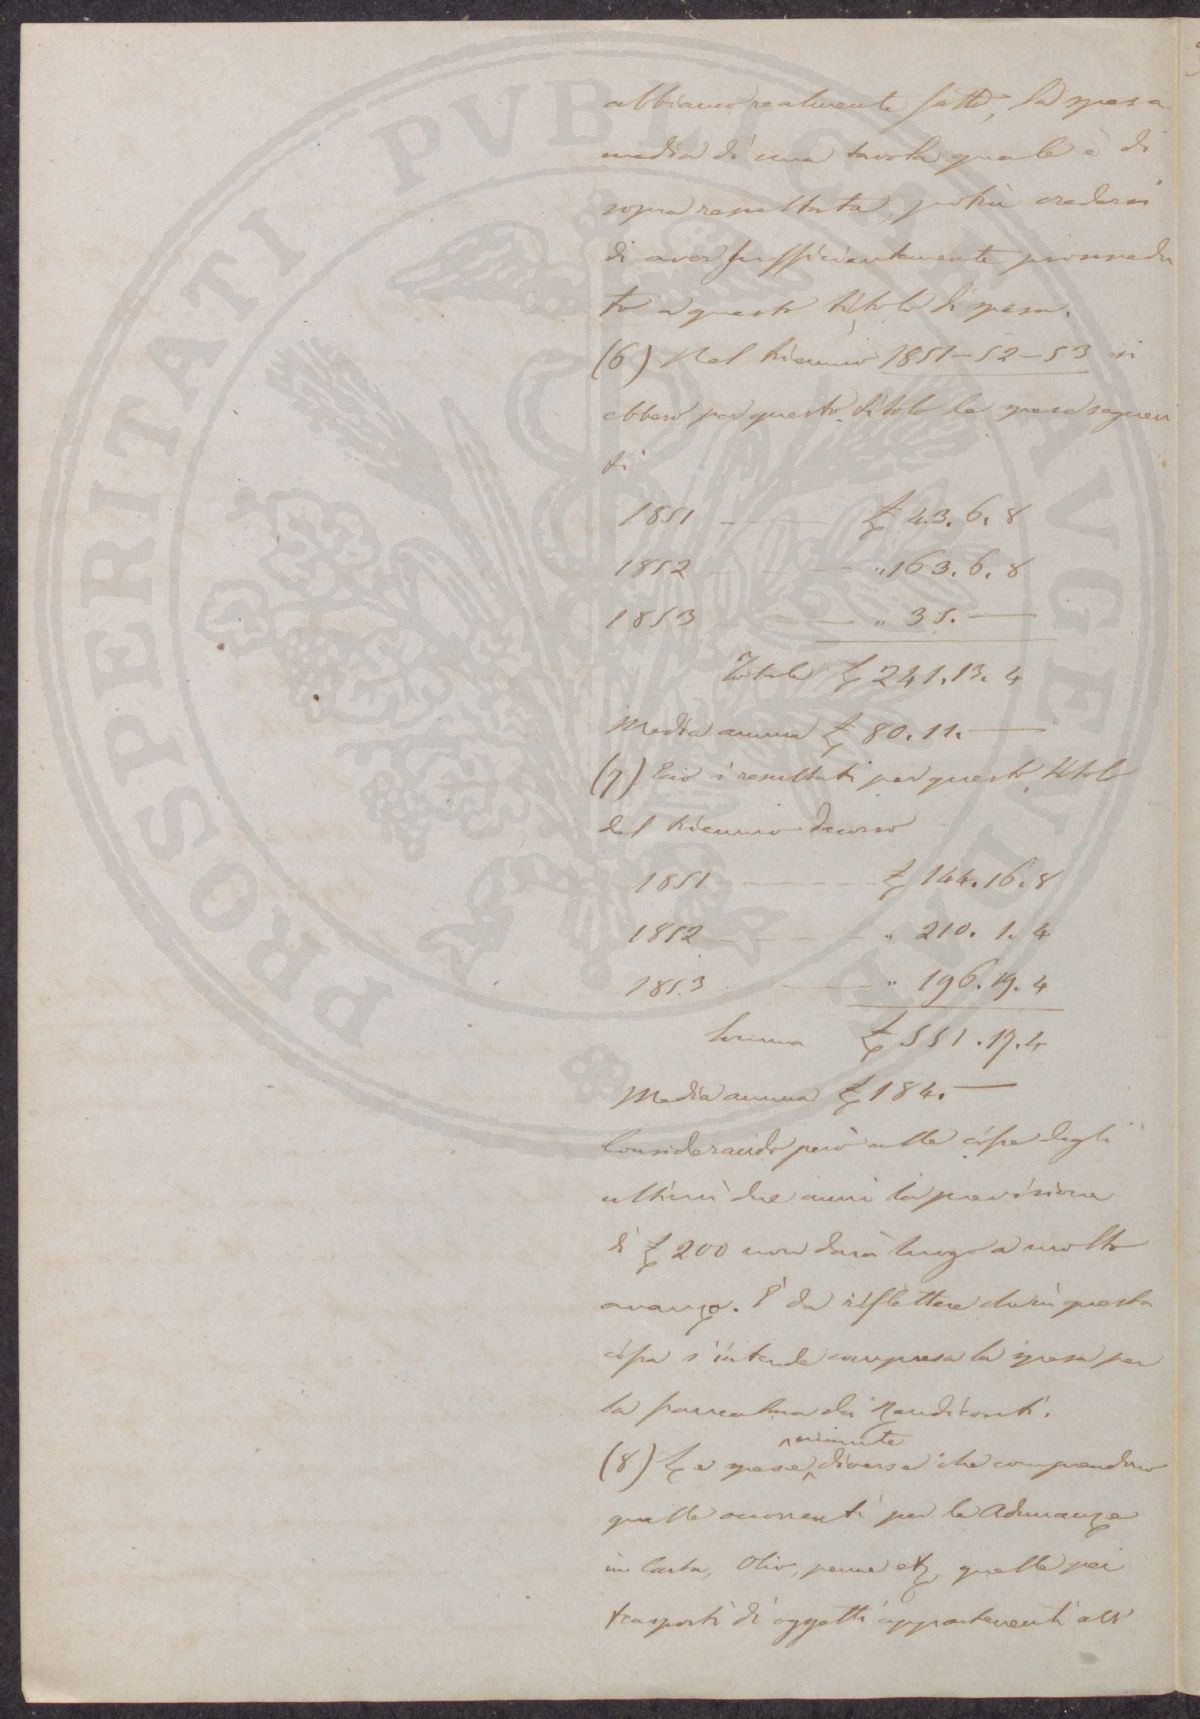 PROSPERITATI PVBLICAE AVGENDAE
abbiamo realmente fatto, la spesa
media di una tavola quale è di
sopra resultata, potrà credersi
di aver sufficientemente provvedu
to a questo titolo di spesa.
(6) Nel triennio 1851-52-53 si
ebbero per questo titolo le spese seguen
ti
1851 — £ 43. 6. 8
1852 — " 163. 6. 8
1853 — " 35. —
Totale £ 241. 13. 4
Media annua £ 80. 11. —
(7) Ecco i resultati per questo titolo
del triennio decorso
1851 — £ 144. 16. 8
1852 — " 210. 1. 4
1853 — " 196. 19. 4
Somma £ 551. 17. 4
Media annua £ 184. —
Considerando però alle cifre degli
ultimi due anni la previsione
di £ 200 non darà luogo a molto
avanzo. È da riflettere che in questa
cifra s'intende compresa la spesa per
la dei Rendiconti.
(8) Le spese minute diverse che comprendono
quelle occorrenti per le Adunanze
in Carta, Olio, penne etc, quelle pei
trasporti di oggetti appartenenti all'